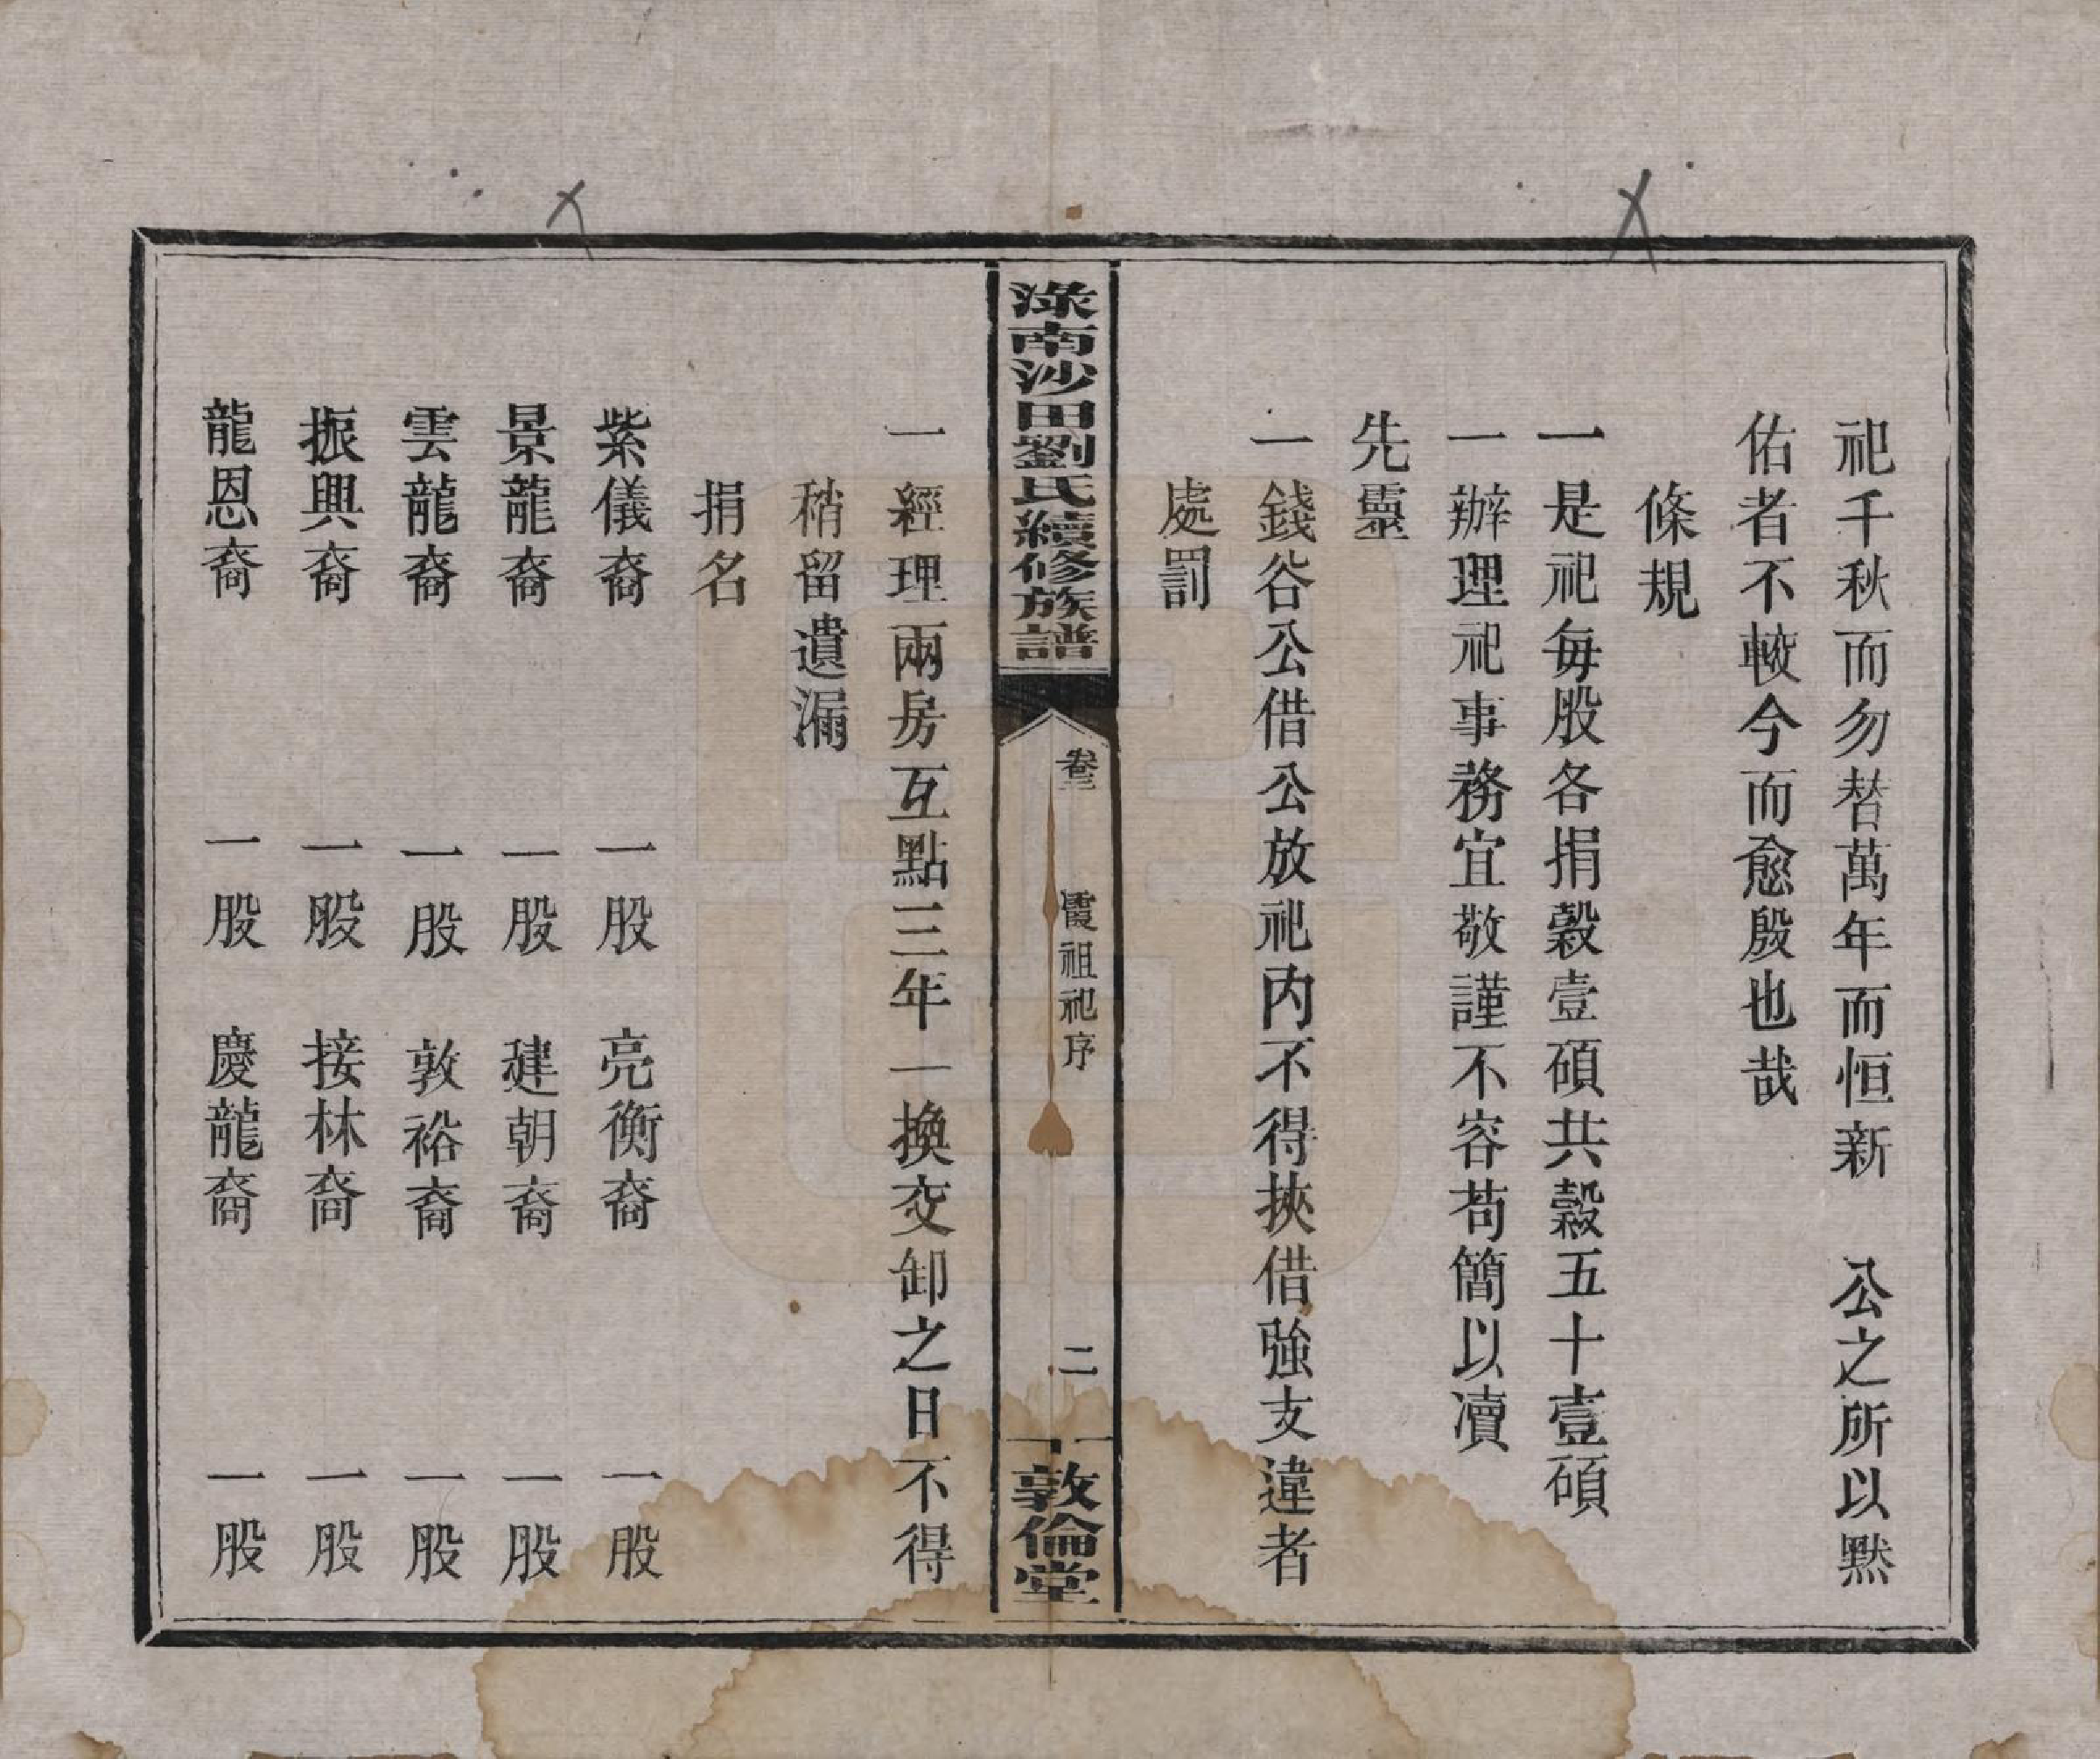 祀千秋而勿替萬年而恒新　公之所以黙
佑者不較今而愈殷也哉
條規
一是祀每股各捐穀壹碩共穀五十壹碩
一辦理祀事務宜敬謹不容苟簡以瀆
先靈
一錢谷公借公放祀內不得挾借強支違者
處罰
淥南沙田劉氏續修族譜
卷三
霞祖祀序
二
敦倫堂
一經理兩房互點三年一換交卸之日不得
稍留遺漏
捐名
紫儀裔　一股　亮衡裔　一股
景龍裔　一股　建朝裔　一股
雲龍裔　一股　敦裕裔　一股
振興裔　一股　接林裔　一股
龍恩裔　一股　慶龍裔　一股